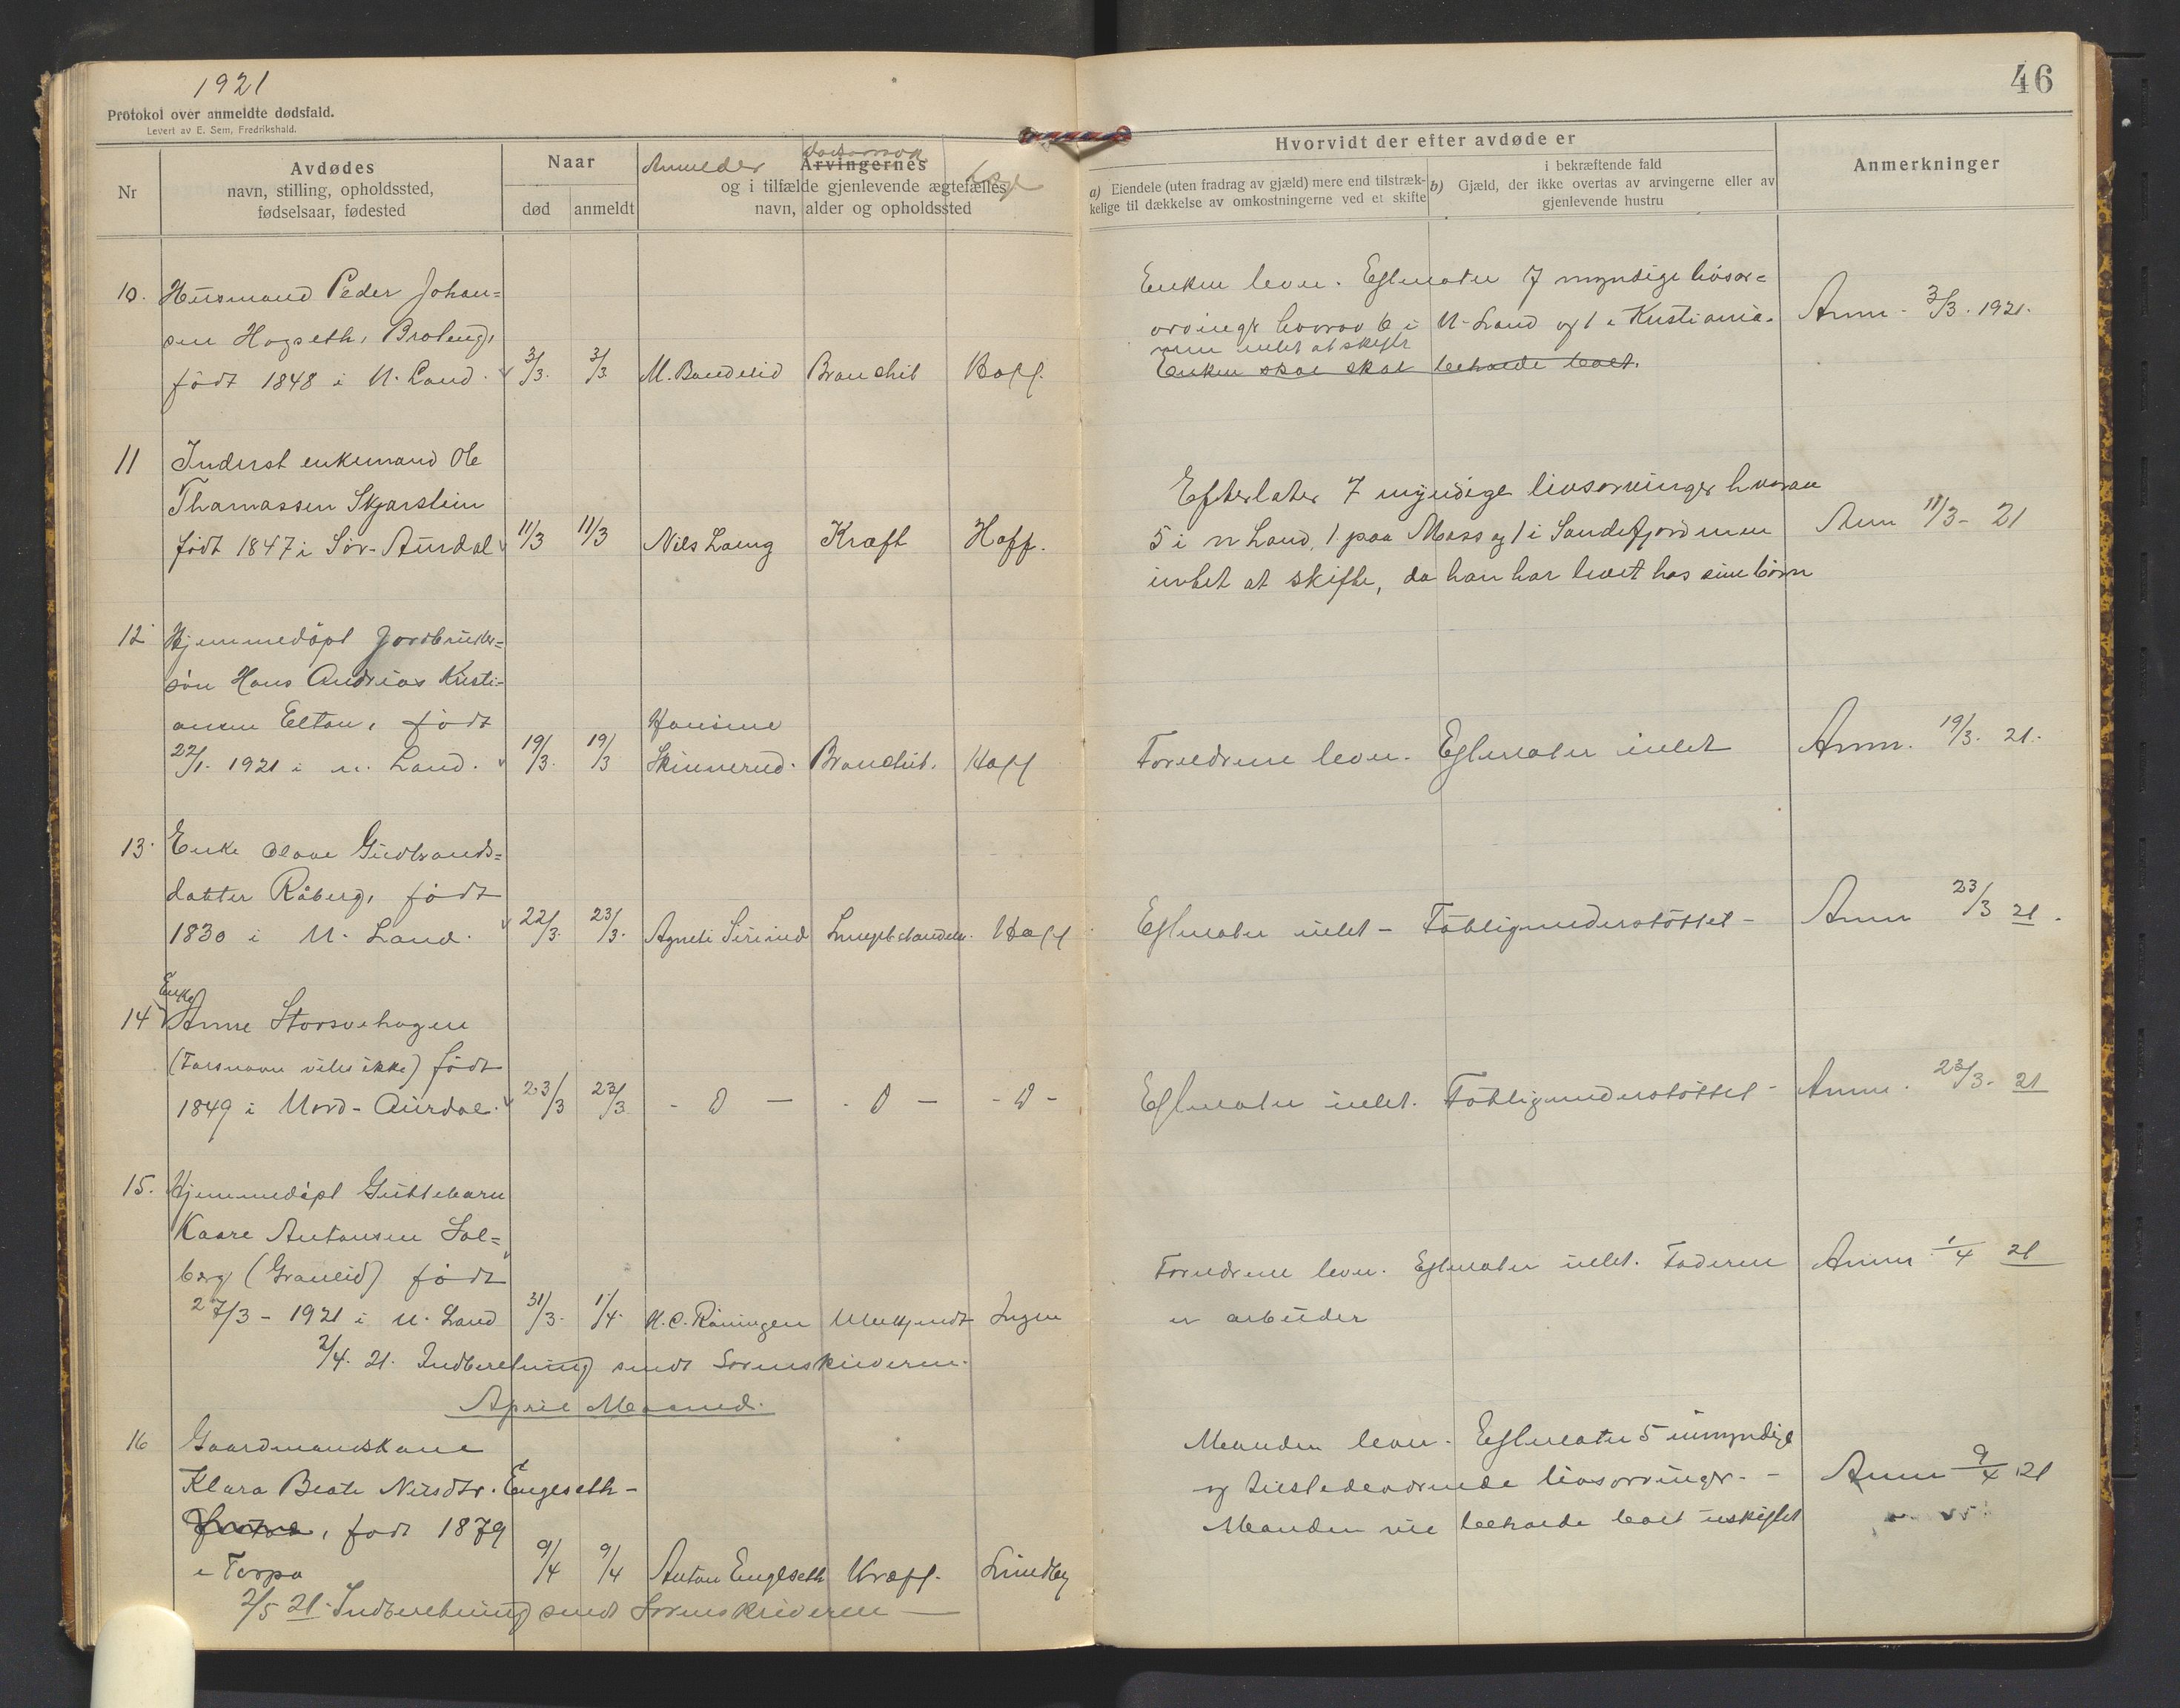 1921
Protokol over anmeldte dødsfald.
Levert av E. Sem, Fredrikshald.
46
Nr
Avdødes
navn, stilling, opholdssted,
fødselsaar, fødested
Naar
død
anmeldt
Anmelder
Arvingernes
og i tilfælde gjenlevende ægtefælles
navn, alder og opholdssted
Hvorvidt der efter avdøde er
a) Eiendele (uten fradrag av gjæld) mere end tilstræk-
kelige til dækkelse av omkostningerne ved et skifte
i bekræftende fald
b) Gjæld, der ikke overtas av arvingerne eller av
gjenlevende hustru
Anmerkninger
10. Husmand Peder Johan=
sen Hogseth, Broleng,
født 1848 i N. Land. 3/3. 3/3 M. Bandelid Brandbit Hoff.
Enken lever. Efterlater 7 myndige livsar=
vinger hvorav 6 i N. Land og 1 i Kristiania.
men intet at skifte
Enken skal skal beholde boet.
Anm. 3/3. 1921.
11 Inderst enkemand Ole
Thomassen Skjarstein
født 1847 i Sør-Aurdal 11/3 11/3 Nils Laing Kræft Hoff.
Efterlater 7 myndige livsarvinger hvorav
5 i N Land, 1 paa Moss og 1 i Sandefjord men
intet at skifte, da han har levet hos sine børn
Anm 11/3 - 21
12 Hjemmedøpt Jordbruker=
søn Hans Andreas Kristi-
ansen Elton, født
22/1. 1921 i N. Land. 19/3. 19/3 Hansine
Skinnerud. Bronchit. Hoff
Forældrene lever. Efterlater intet
Anm. 19/3. 21.
13. Enke Olave Gudbrands=
datter Råberg, født
1830 i N. Land. 22/3. 23/3. Agnete Sirirud Lungebetændelse. Hoff
Efterlater intet - Fattigunderstøttet -
Anm 23/3 21.
14 Enke
Anne Storsvehagen
(Farsnavn vites ikke) født
1849 i Nord-Aurdal. 23/3 23/3. - 0 - - 0 - - 0 -
Efterlater intet. Fattigunderstøttet -
Anm. 23/3. 21
15. Hjemmedøpt Guttebarn
Kaare Antonsen Sol=
berg (Granlid) født
27/3 - 1921 i N. Land 31/3. 1/4. K. O. Røningen Ukjendt Ingen
Forældrene lever. Efterlater intet. Faderen
er arbeider
Anm 1/4 21
2/4. 21. Indberetning sendt Sorenskriveren.
April Maaned.
16 Gaardmandskone
Klara Beate Nilsdtr. Engeseth -
, født 1879
i Torpa 9/4 9/4 Anton Engeseth Kræft. Lundby
Manden lever. Efterlater 5 umyndige
og tilstedeværende livsarvinger. -
Manden vil beholde boet uskiftet
Anm 9/4 21
2/5 21. Indberetning sendt Sorenskriveren